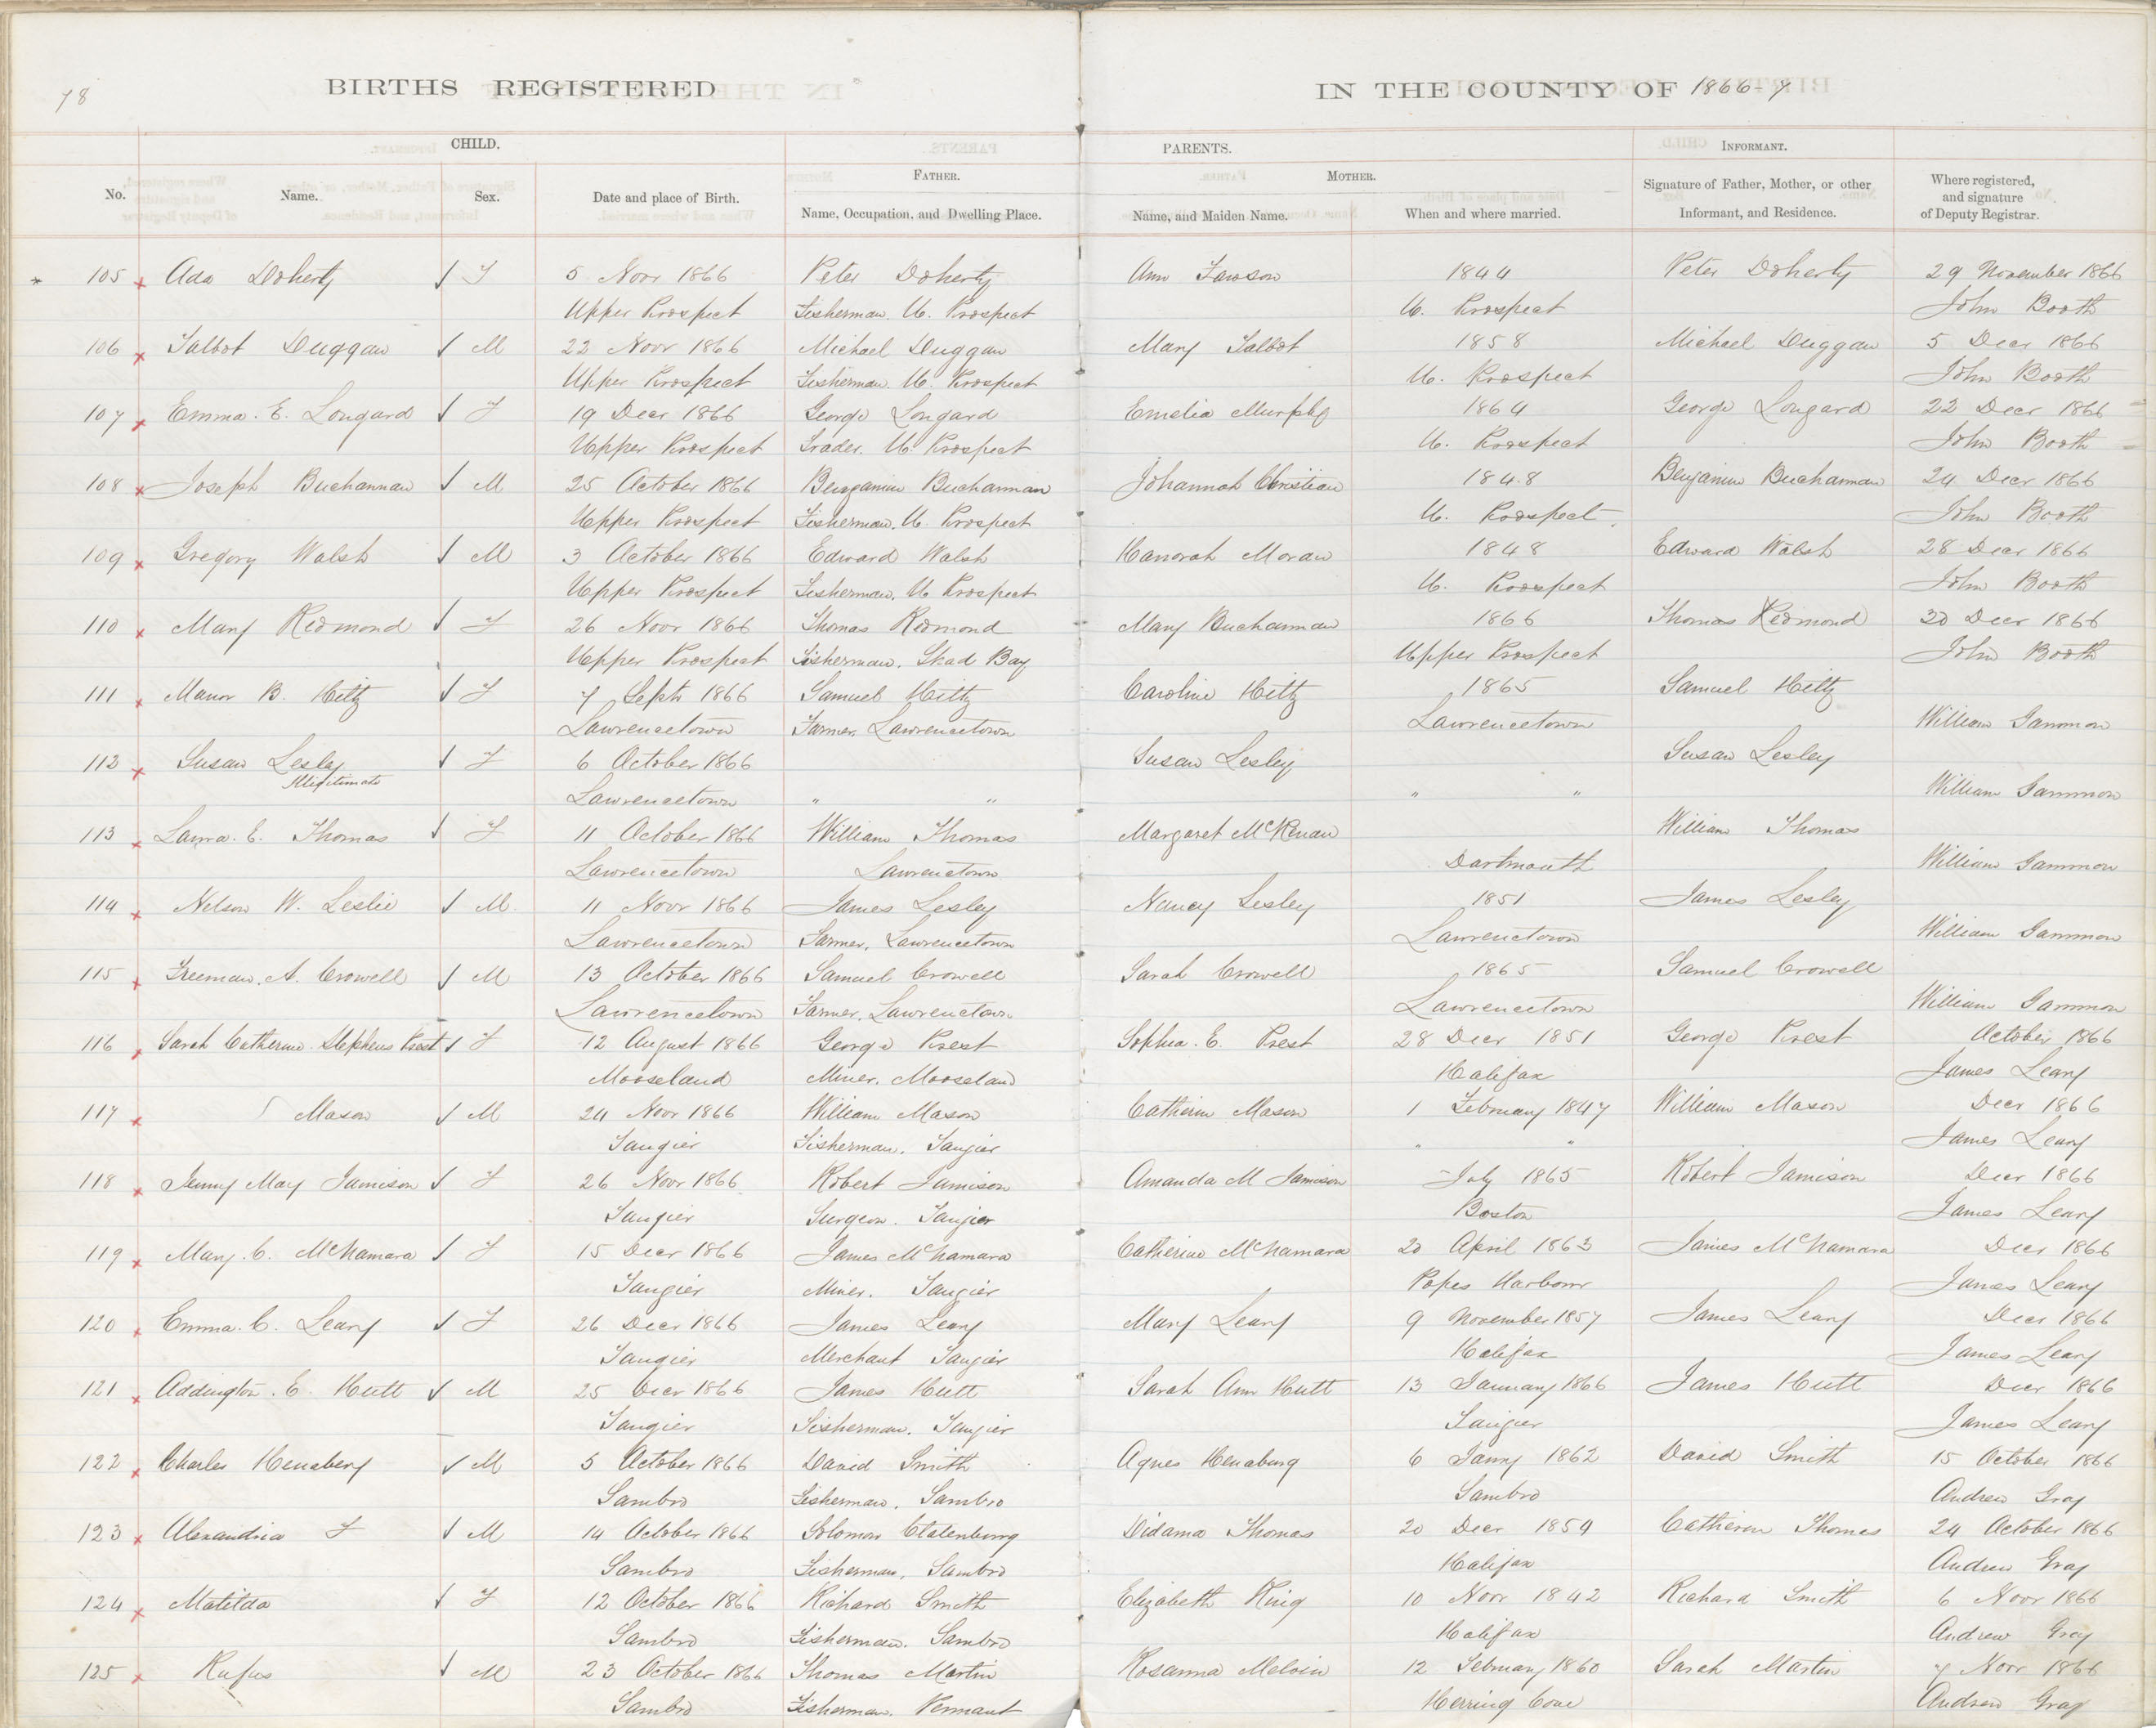 78
BIRTHS REGISTERED IN THE COUNTY OF 1866-7
CHILD. PARENTS. INFORMANT.
FATHER. MOTHER.
No. Name. Sex. Date and place of Birth. Name, Occupation, and Dwelling Place. Name, and Maiden Name. When and where married. Signature of Father, Mother, or other Informant, and Residence. Where registered, and signature of Deputy Registrar.
105 Ada Doherty F 5 Novr 1866 Peter Doherty Ann Fawson 1844 Peter Doherty 29 November 1866
Upper Prospect Fisherman. U. Prospect U. Prospect John Booth
106 Talbot Duggan M 22 Novr 1866 Michael Duggan Mary Talbot 1858 Michael Duggan 5 Decr 1866
Upper Prospect Fisherman. U. Prospect U. Prospect John Booth
107 Emma. E. Longard F 19 Decr 1866 George Longard Emelia Murphy 1864 George Longard 22 Decr 1866
Upper Prospect Trader. U. Prospect U. Prospect John Booth
108 Joseph Buchannan M 25 October 1866 Benjamin Buchannan Johannah Christian 1848 Benjamin Buchannan 24 Decr 1866
Upper Prospect Fisherman. U. Prospect U. Prospect John Booth
109 Gregory Walsh M 3 October 1866 Edward Walsh Hanorah Moran 1848 Edward Walsh 28 Decr 1866
Upper Prospect Fisherman. U. Prospect U. Prospect John Booth
110 Mary Redmond F 26 Novr 1866 Thomas Redmond Mary Buchannan 1866 Thomas Redmond 30 Decr 1866
Upper Prospect Fisherman. Shad Bay Upper Prospect John Booth
111 B. Hiltz F 7 Septr 1866 Samuel Hiltz Caroline Hiltz 1865 Samuel Hiltz
Lawrencetown Farmer. Lawrencetown Lawrencetown William Gammon
112 Susan Lesley F 6 October 1866 Susan Lesley Susan Lesley
Illigitimate Lawrencetown " " " " William Gammon
113 Laura. E. Thomas F 11 October 1866 William Thomas Margaret McKenan William Thomas
Lawrencetown Lawrencetown Dartmouth William Gammon
114 Nelson W. Leslie M 11 Novr 1866 James Lesley Nancy Lesley 1851 James Lesley
Lawrencetown Farmer, Lawrencetown Lawrencetown William Gammon
115 Freeman. A. Crowell M 13 October 1866 Samuel Crowell Sarah Crowell 1865 Samuel Crowell
Lawrencetown Farmer. Lawrencetown Lawrencetown William Gammon
116 Sarah Catherine Stephens Prest F 12 August 1866 George Prest Sophia. E. Prest 28 Decr 1851 George Prest October 1866
Mooseland Miner. Mooseland Halifax James Leary
117 Mason M 24 Novr 1866 William Mason Catherin Mason 1 February 1847 William Mason Decr 1866
Tangier Fisherman. Tangier " " James Leary
118 Jenny May Jamison F 26 Novr 1866 Robert Jamison Amanda M Jamison July 1865 Robert Jamison Decr 1866
Tangier Surgeon. Tangier Boston James Leary
119 Mary. C. McNamara F 15 Decr 1866 James McNamara Catherine McNamara 20 April 1863 James McNamara Decr 1866
Tangier Miner. Tangier Popes Harbour James Leary
120 Emma. C. Leary F 26 Decr 1866 James Leary Mary Leary 9 November 1857 James Leary Decr 1866
Tangier Merchant Tangier Halifax James Leary
121 Addington. E. Hutt M 25 Decr 1866 James Hutt Sarah Ann Hutt 13 January 1866 James Hutt Decr 1866
Tangier Fisherman. Tangier Tangier James Leary
122 Charles Henebery M 5 October 1866 David Smith Agnes Heneburg 6 Janny 1862 David Smith 15 October 1866
Sambro Fisherman. Sambro Sambro Andrew Gray
123 Alexandria F M 14 October 1866 Solomon Didama Thomas 20 Decr 1854 Catheren Thomas 24 October 1866
Sambro Fisherman. Sambro Halifax Andrew Gray
124 Matilda F 12 October 1866 Richard Smith Elizabeth King 10 Novr 1842 Richard Smith 6 Novr 1866
Sambro Fisherman. Sambro Halifax Andrew Gray
125 Rufus M 23 October 1866 Thomas Martin Rosanna Melvin 12 February 1860 Sarah Martin 7 Novr 1866
Sambro Fisherman. Pennant Herring Cove Andrew Gray